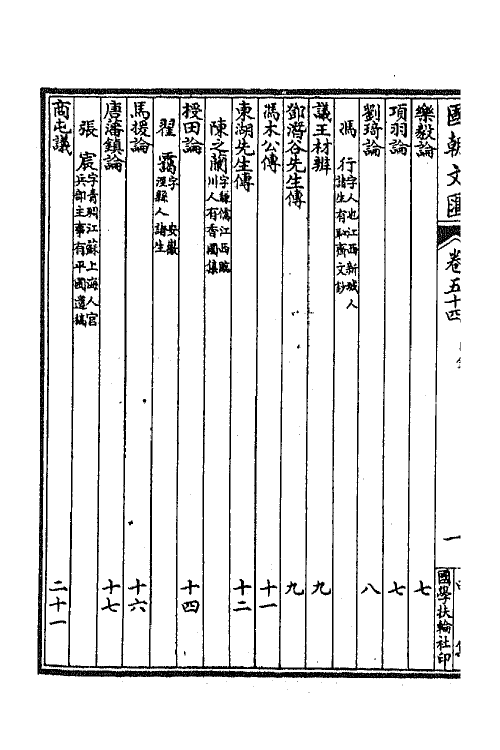 國朝文匯 卷五十四 一 國學扶輪社印
樂毅論 七
項羽論 七
劉琦論 八
馮 行 字人也江西新城人諸生有恥齋文鈔
議王材辨 九
鄧潛谷先生傳 九
馮木公傳 十一
東湖先生傳 十二
陳之蘭 字 江西臨川人有香國集
授田論 十四
翟 靄 字 安徽涇縣人諸生
馬援論 十六
唐藩鎮論 十七
張 宸 字青琱江蘇上海人官兵部主事有平圃遺稿
商屯議 二十一